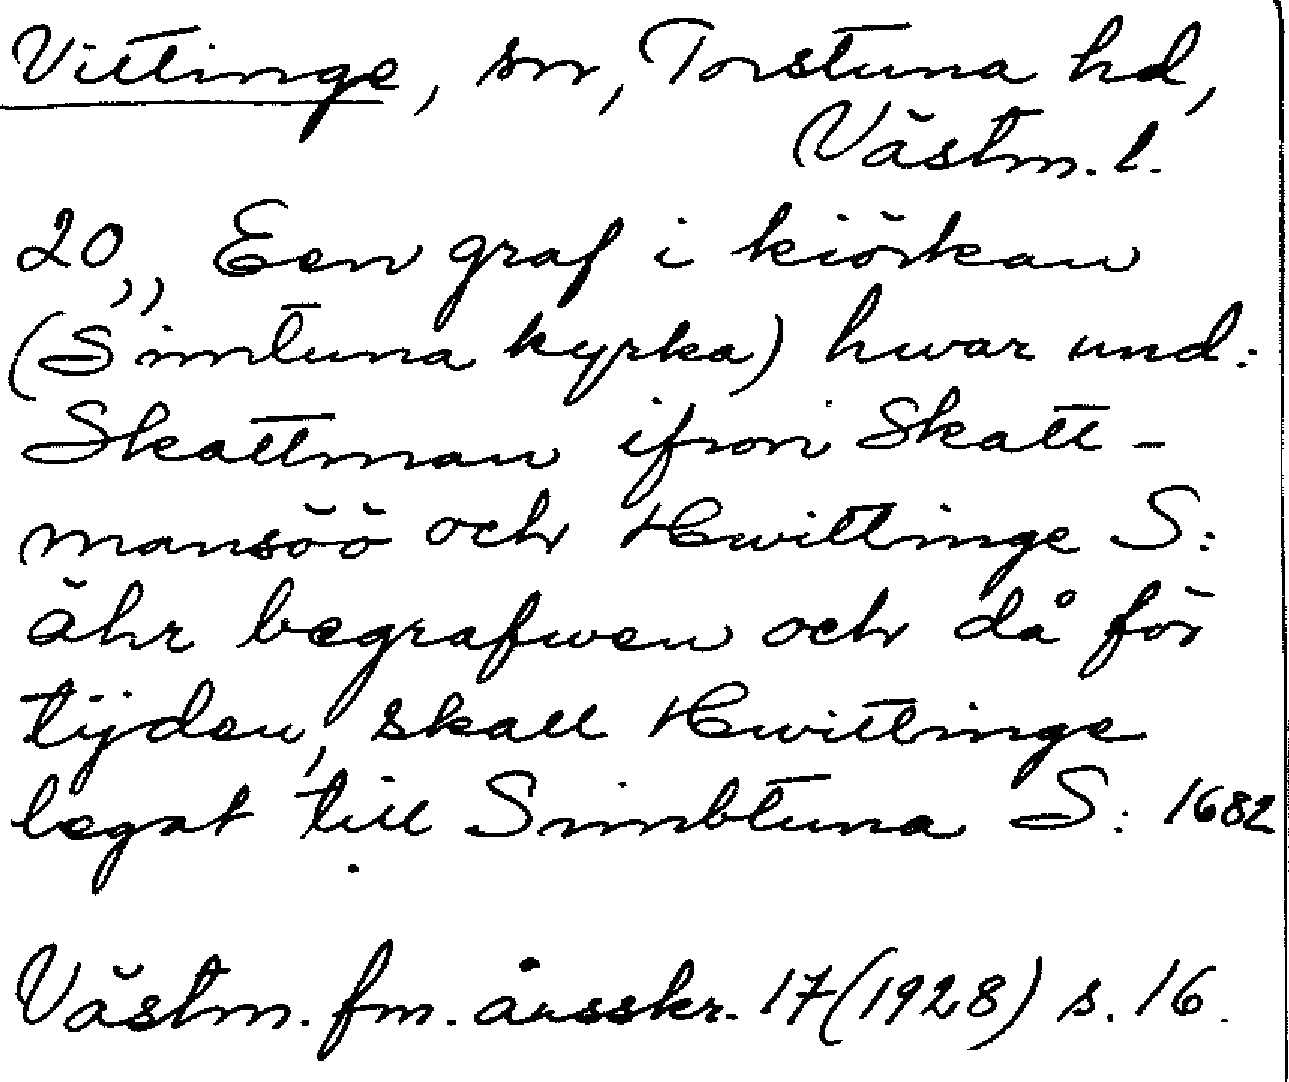 Vittinge, sn, Torstuna hd,
Västm. l.
20,, Een graf i kiörkan
(Simtuna kyrka) hwar und:
Skattman ifron Skatt-
mansöö och Hwittinge S:
ähr begrafwen och då för
tijden, skall Hwittinge
legat till Simbtuna S: 1682
Västm. fm. årsskr. 17 (1928) s. 16.